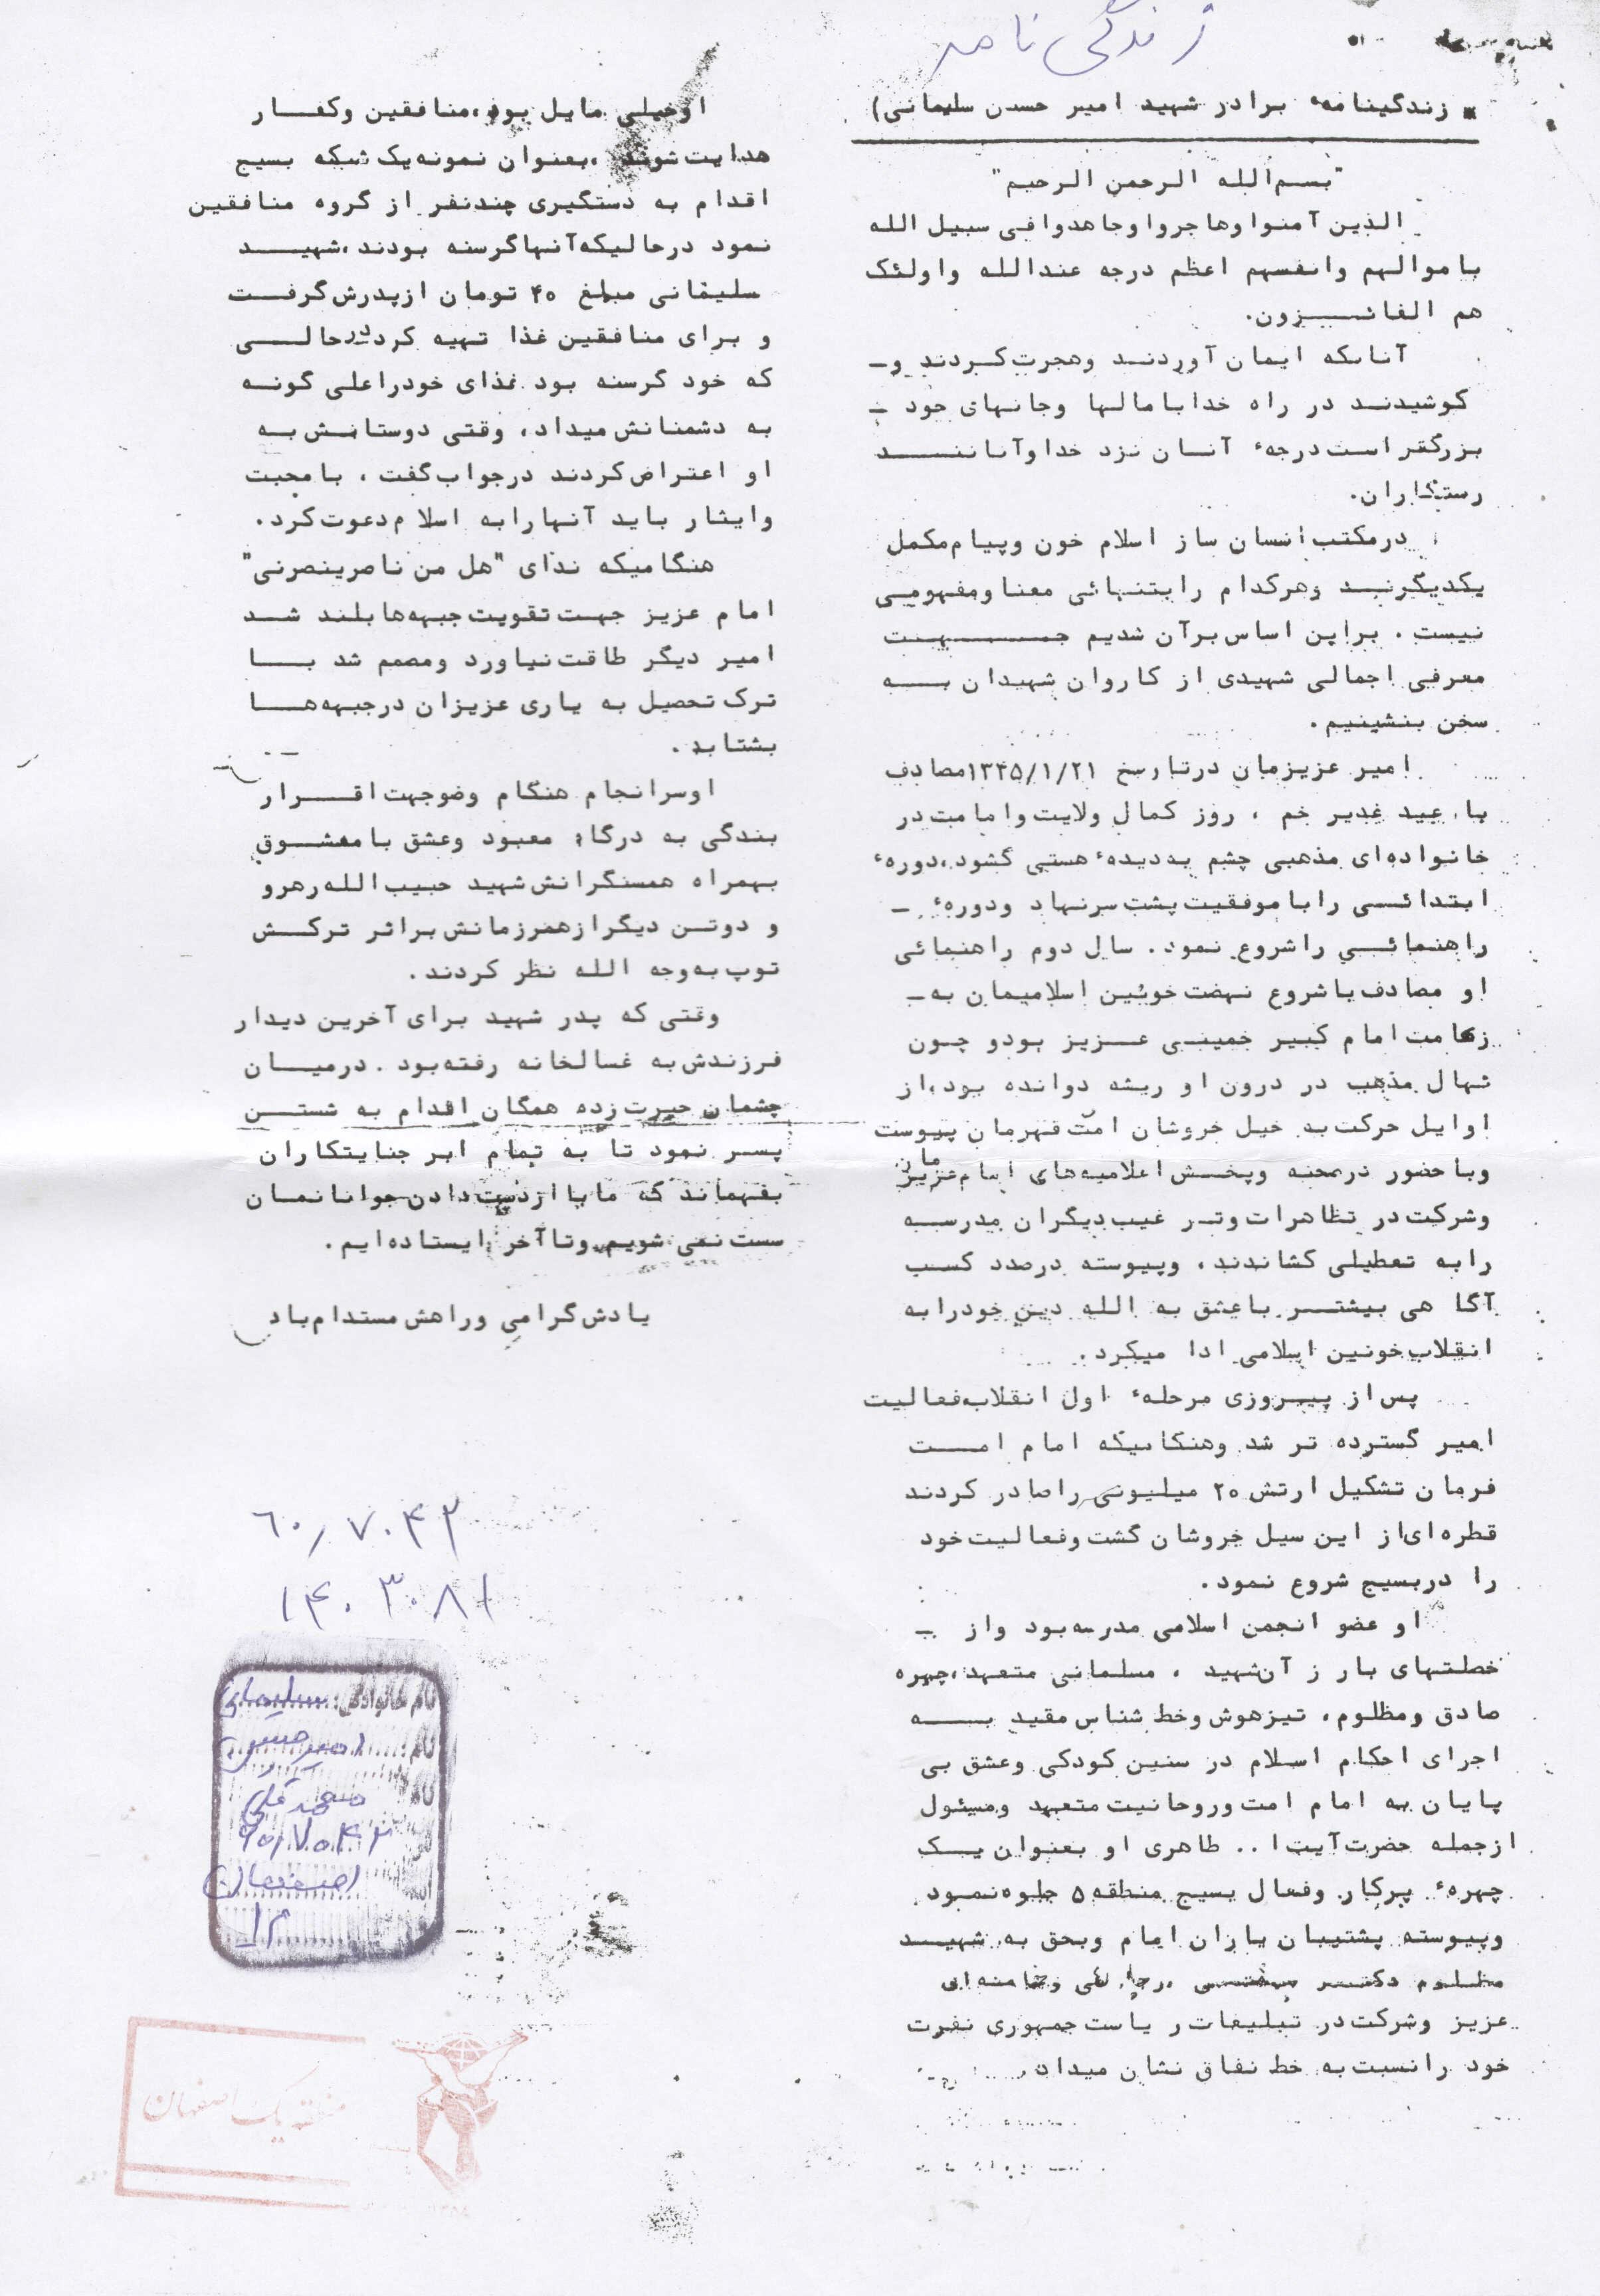 زندگی نامه
* زندگینامهٔ برادر شهید امیر حسن سلیمانی)
"بسم الله الرحمن الرحیم"
الذین آمنوا وهاجروا وجاهدوا فی سبیل الله
باموالهم وانفسهم اعظم درجه عندالله واولئک
هم الفائـــزون.
آنانکه ایمان آوردنـد وهجرت کـردند وـ
کوشیدنـد در راه خدا بامالها وجانهای خود ـ
بزرگتر است درجهٔ آنـان نزد خدا وآنانند
رستگاران.
درمکتب انسان ساز اسلام خون وپیام مکمل
یکدیگرنـد وهرکدام را بتنهائی معنا ومفهومی
نیست . براین اساس برآن شدیم جـــهت
معرفی اجمالی شهیدی از کاروان شهیدان بــه
سخن بنشینیم .
امیر عزیزمان درتاریخ ۱۳۴۵/۱/۲۱ مصادف
با عید غدیر خم ، روز کمال ولایت وامامت در
خانواده‌ای مذهبی چشم به دیدهٔ هستی گشود، دورهٔ
ابتدائـی را با موفقیت پشت سرنهاد ودورهٔ ـ
راهنمائـی را شروع نمود . سال دوم راهنمائی
او مصادف با شروع نهضت خونین اسلامیمان به ـ
زعامت امام کبیر خمینـی عـزیز بودو چـون
نهال مذهب در درون او ریشه دوانده بود، از
اوایل حرکت به خیل خروشان امّت قهرمان پیوست
وبا حضور درصحنه وپخـش اعلامیه‌های امام عزیزمان
وشرکت در تظاهرات وتـر غیب دیگران مدرسـه
را به تعطیلی کشاندند ، وپیوسته درصدد کسـب
آگا هی بیشتـر با عشق به الله دین خودرا به
انقلاب خونین اسلامی ادا میکرد .
پس از پیـروزی مرحلهٔ اول انقلاب فعالیت
امیر گسترده تر شد وهنگامیکه امام امــت
فرمان تشکیل ارتش ۲۰ میلیونی را صادر کردند
قطره‌ای از این سیل خروشان گشت وفعالیت خود
را دربسیج شروع نمود .
او عضو انجمن اسلامی مدرسه بود واز ـ
خصلتهای بارز آن شهید ، مسلمانی متعهد، چهره
صادق ومظلوم ، تیزهوش وخط شناس مقید بـــه
اجرای احکام اسلام در سنین کودکی وعشق بی
پایان به امام امت وروحانیت متعهد ومسئول
ازجمله حضرت آیت ا .. طاهری او بعنوان یـک
چهرهٔ پرکار وفعال بسیج منطقه ۵ جلوه نمود
وپیوسته پشتیبان یاران امام وبحق به شهیــد
مظلـوم دکتـر بهشتـی ،رجائی وخامنه‌ای
عزیز وشرکت در تبلیغات ریاست جمهوری نفرت
خود را نسبت به خط نفاق نشان میداد .
اوخیلی مایل بود ،منافقین وکفـــار
هدایت شوند ،بعنوان نمونه یک شبکه بسیج
اقدام به دستگیری چندنفر از گروه منافقین
نمود درحالیکه آنها گرسنه بودند ،شهیــد
سلیمانی مبلغ ۴۰ تومان ازپدرش گرفــت
و برای منافقین غذا تهیه کرد درحالــی
که خود گرسنه بود غذای خودرا علی گونـه
به دشمنانش میداد ، وقتی دوستانش بـه
او اعتراض کردند درجواب گفت ، با محبت
وایثار باید آنهارا به اسلام دعوت کرد .
هنگامیکه ندای "هل من ناصر ینصرنی"
امام عزیز جهت تقویت جبهه‌ها بلند شــد
امیر دیگر طاقت نیاورد ومصمم شد بـــا
ترک تحصیل به یاری عزیزان درجبهه‌هــا
بشتابد .
اوسرانجام هنگام وضوجهت اقــرار
بندگی به درگاه معبود وعشق با معشـوق
بهمراه همسنگرانش شهید حبیب الله رهرو
و دوتـن دیگر از همرزمانش براثر ترکــش
توپ به وجه الله نظر کردند .
وقتی که پدر شهید برای آخرین دیدار
فرزندش به غسالخانه رفته بود . درمیــان
چشمان حیرت زده همگان اقدام به شستــن
پسـر نمود تا به تمام ابر جنایتکاران
بفهماند که ما با ازدست دادن جوانانمـان
سست نمی شویم وتا آخر ایستاده‌ایم .
یادش گرامی وراهش مستدام باد
۶۰/۷۰۴۲
۱۴۰۳۰۸۱
نام خانوادگی: سلیمانی
نام: امیرحسن
نام محمدعلی
۶۰/۷۰۴۲
اصفهان
۱۲
منطقه یک اصفهان